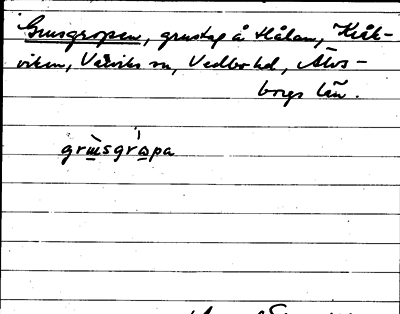 Grusgropen, grustag å Hålan, Kråk-
viken, Vårviks sn, Vedbo hd, Älvs-
borgs län.
grusgrɷpa